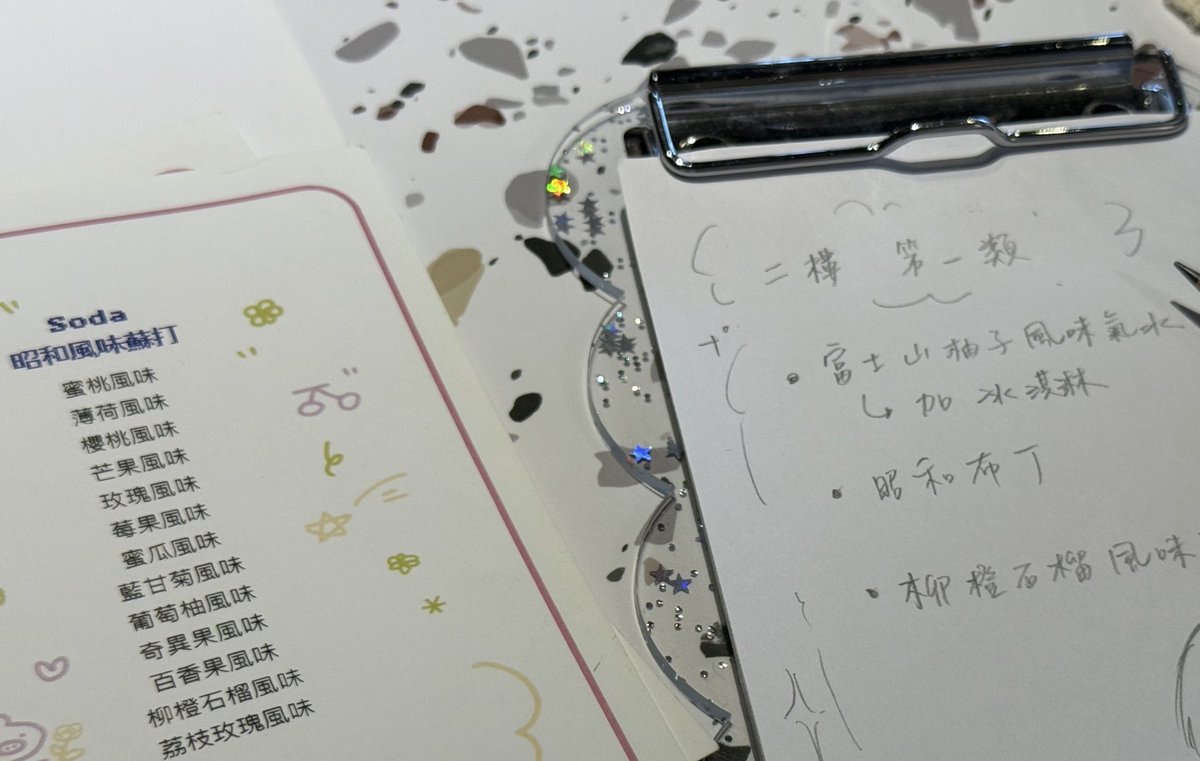 Soda
昭和風味蘇打
蜜桃風味
薄荷風味
櫻桃風味
芒果風味
玫瑰風味
莓果風味
蜜瓜風味
藍甘菊風味
葡萄柚風味
奇異果風味
百香果風味
柳橙石榴風味
荔枝玫瑰風味
二樓 第一類
• 富士山柚子風味氣水
↳ 加冰淇淋
• 昭和布丁
• 柳橙石榴風味